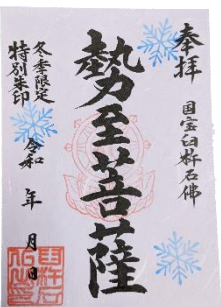 奉拝
国宝臼杵石佛
勢至菩薩
冬季限定
特別朱印
令和 年 月 日